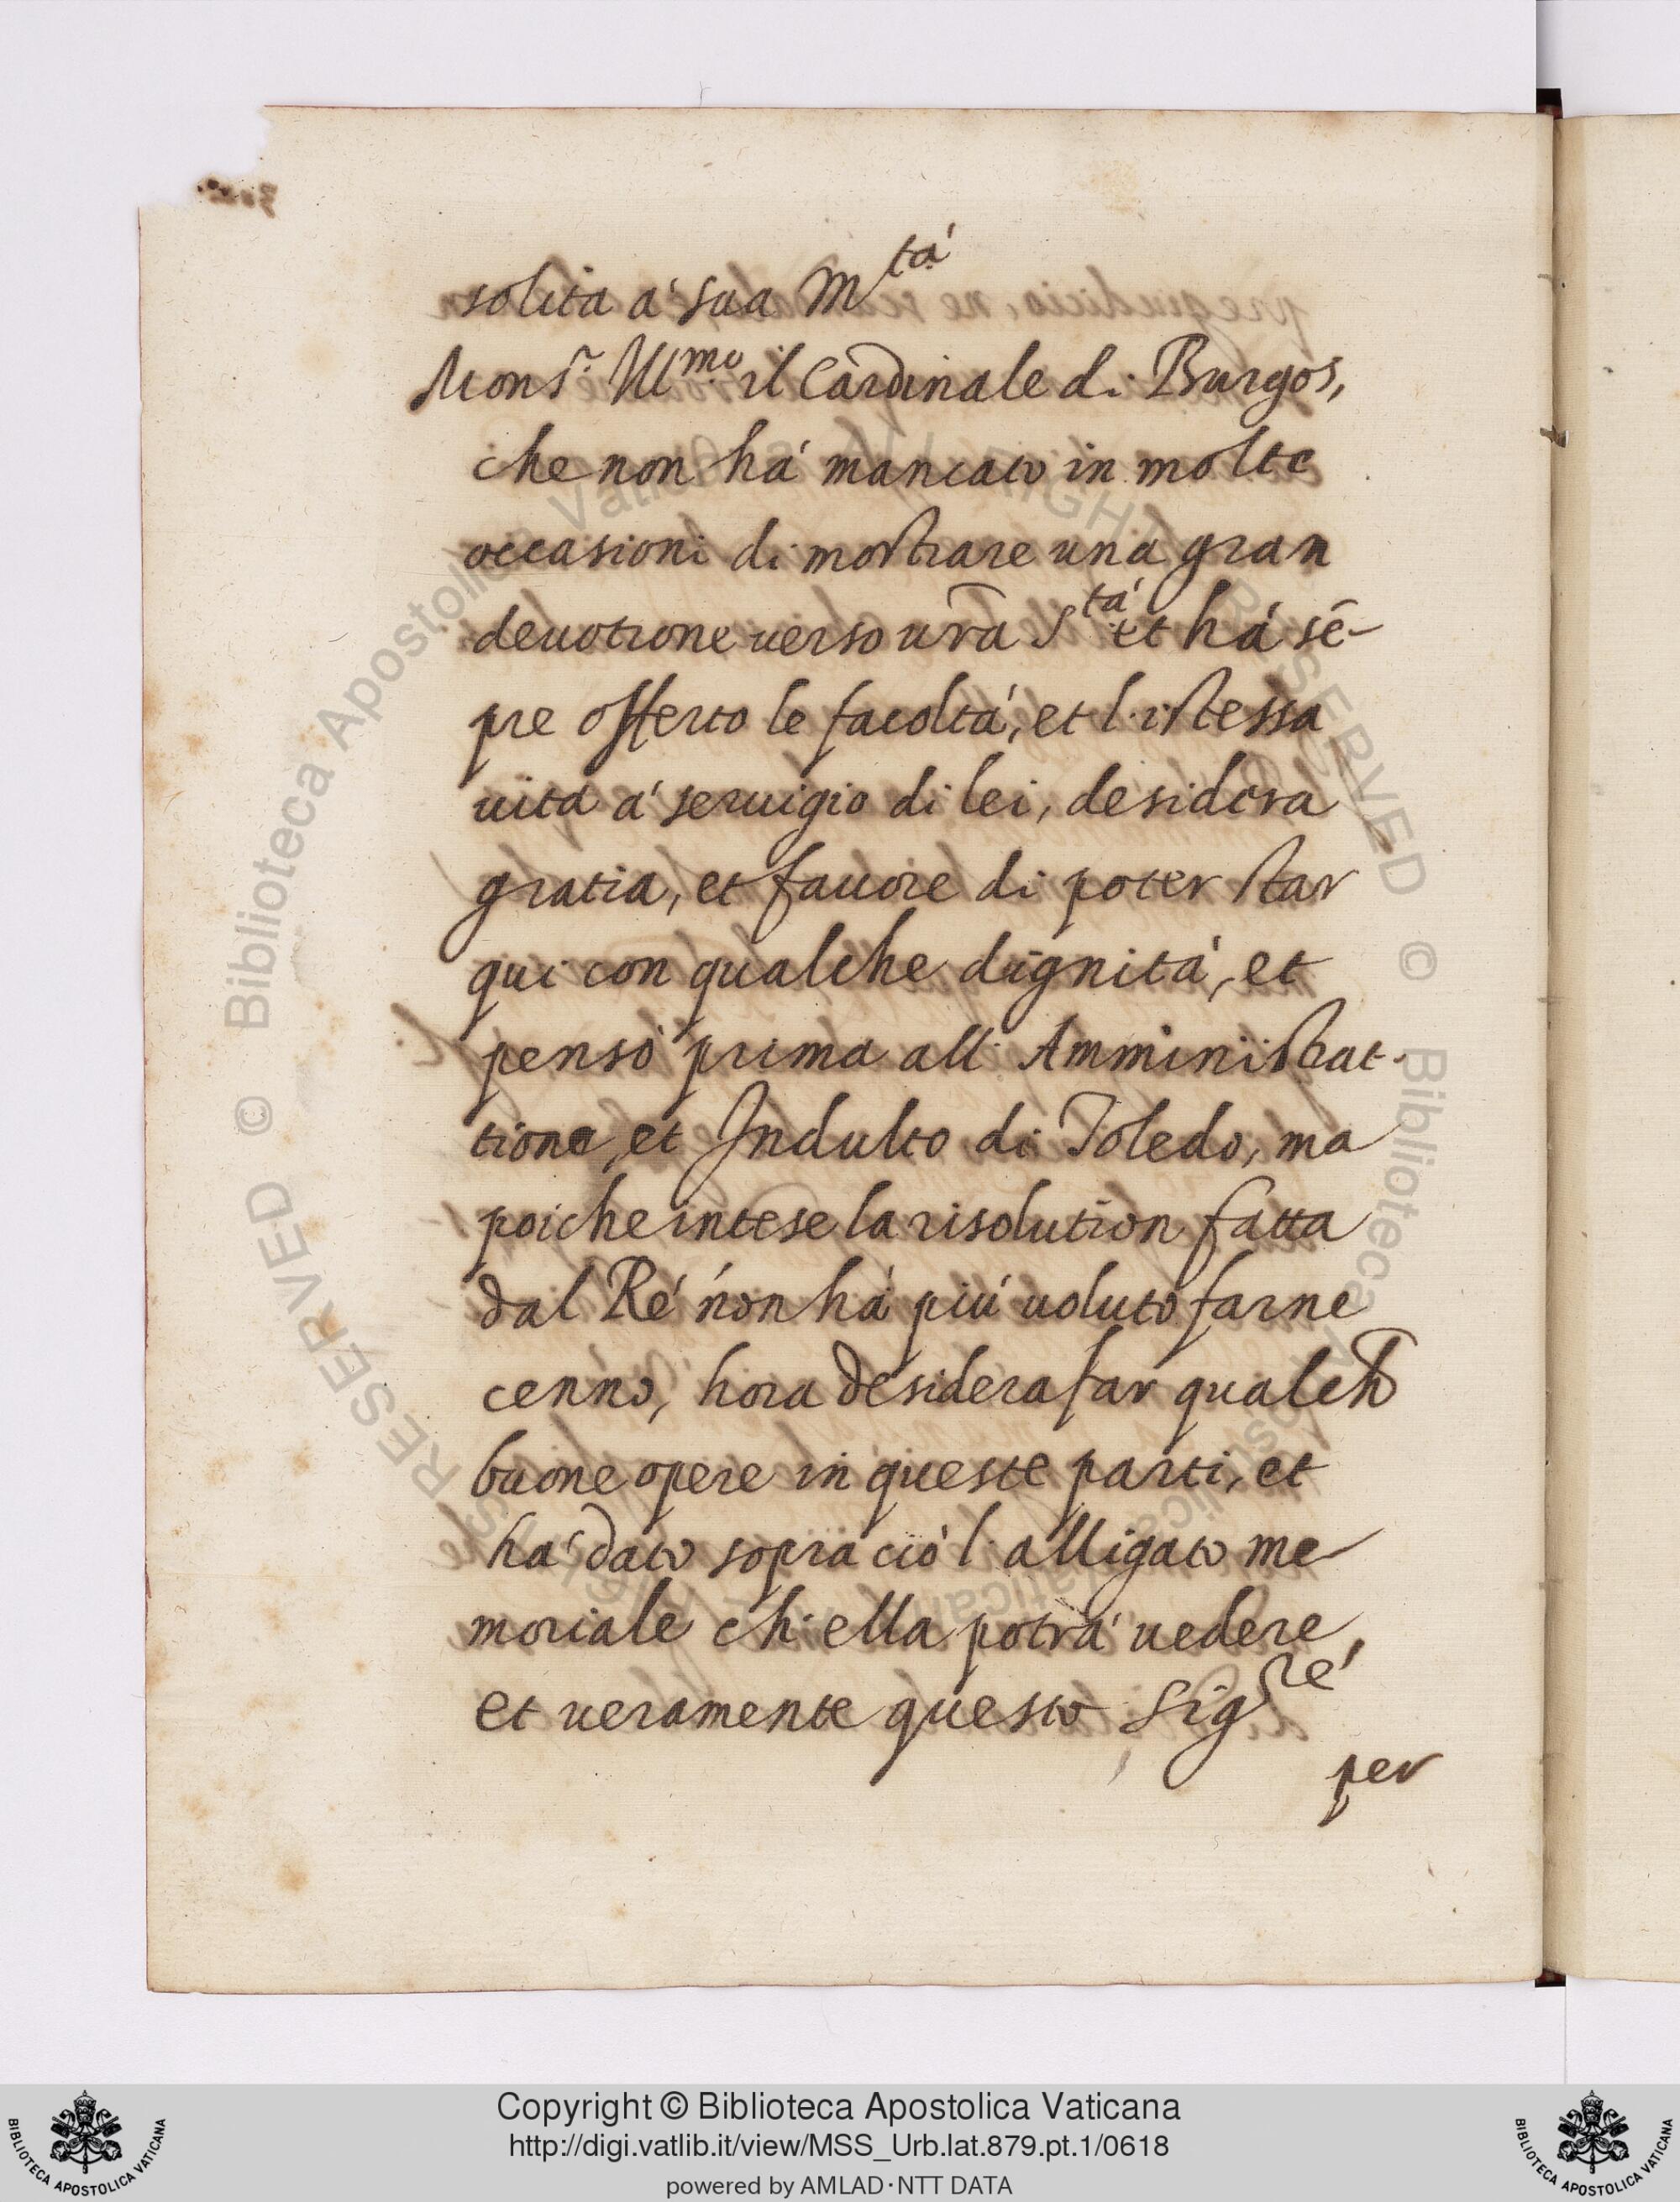 solita a' sua M.tá
Mons.r Ill.mo il Cardinale di Burgos,
che non há mancato in molte
occasioni di mostrare una gran
deuotione uerso ura S.tá et há sē-
pre offerto le facoltá, et l'istessa
uita a' seruigio di lei, desidera
gratia, et fauore di poter star
qui con qualche dignitá, et
pensó prima all' Amministrat-
tione, et Indulto di Toledo, ma
poiche intese la risolution fatta
dal Ré non há piú uoluto farne
cenno, hora desidera far qualch
buone opere in queste parti, et
há dato sopra ció l'alligato me-
moriale ch' ella potrá uedere,
et ueramente questo Sig.re
per
© Biblioteca Apostolica Vaticana ALL RIGHTS RESERVED
Copyright © Biblioteca Apostolica Vaticana
http://digi.vatlib.it/view/MSS_Urb.lat.879.pt.1/0618
powered by AMLAD·NTT DATA
BIBLIOTECA APOSTOLICA VATICANA
BIBLIOTECA APOSTOLICA VATICANA